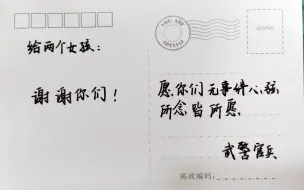 给两个女孩：
谢谢你们！
YOU ARE
SPECIAL
愿你们无事伴心弦，
所念皆所愿
武警官兵
邮政编码：